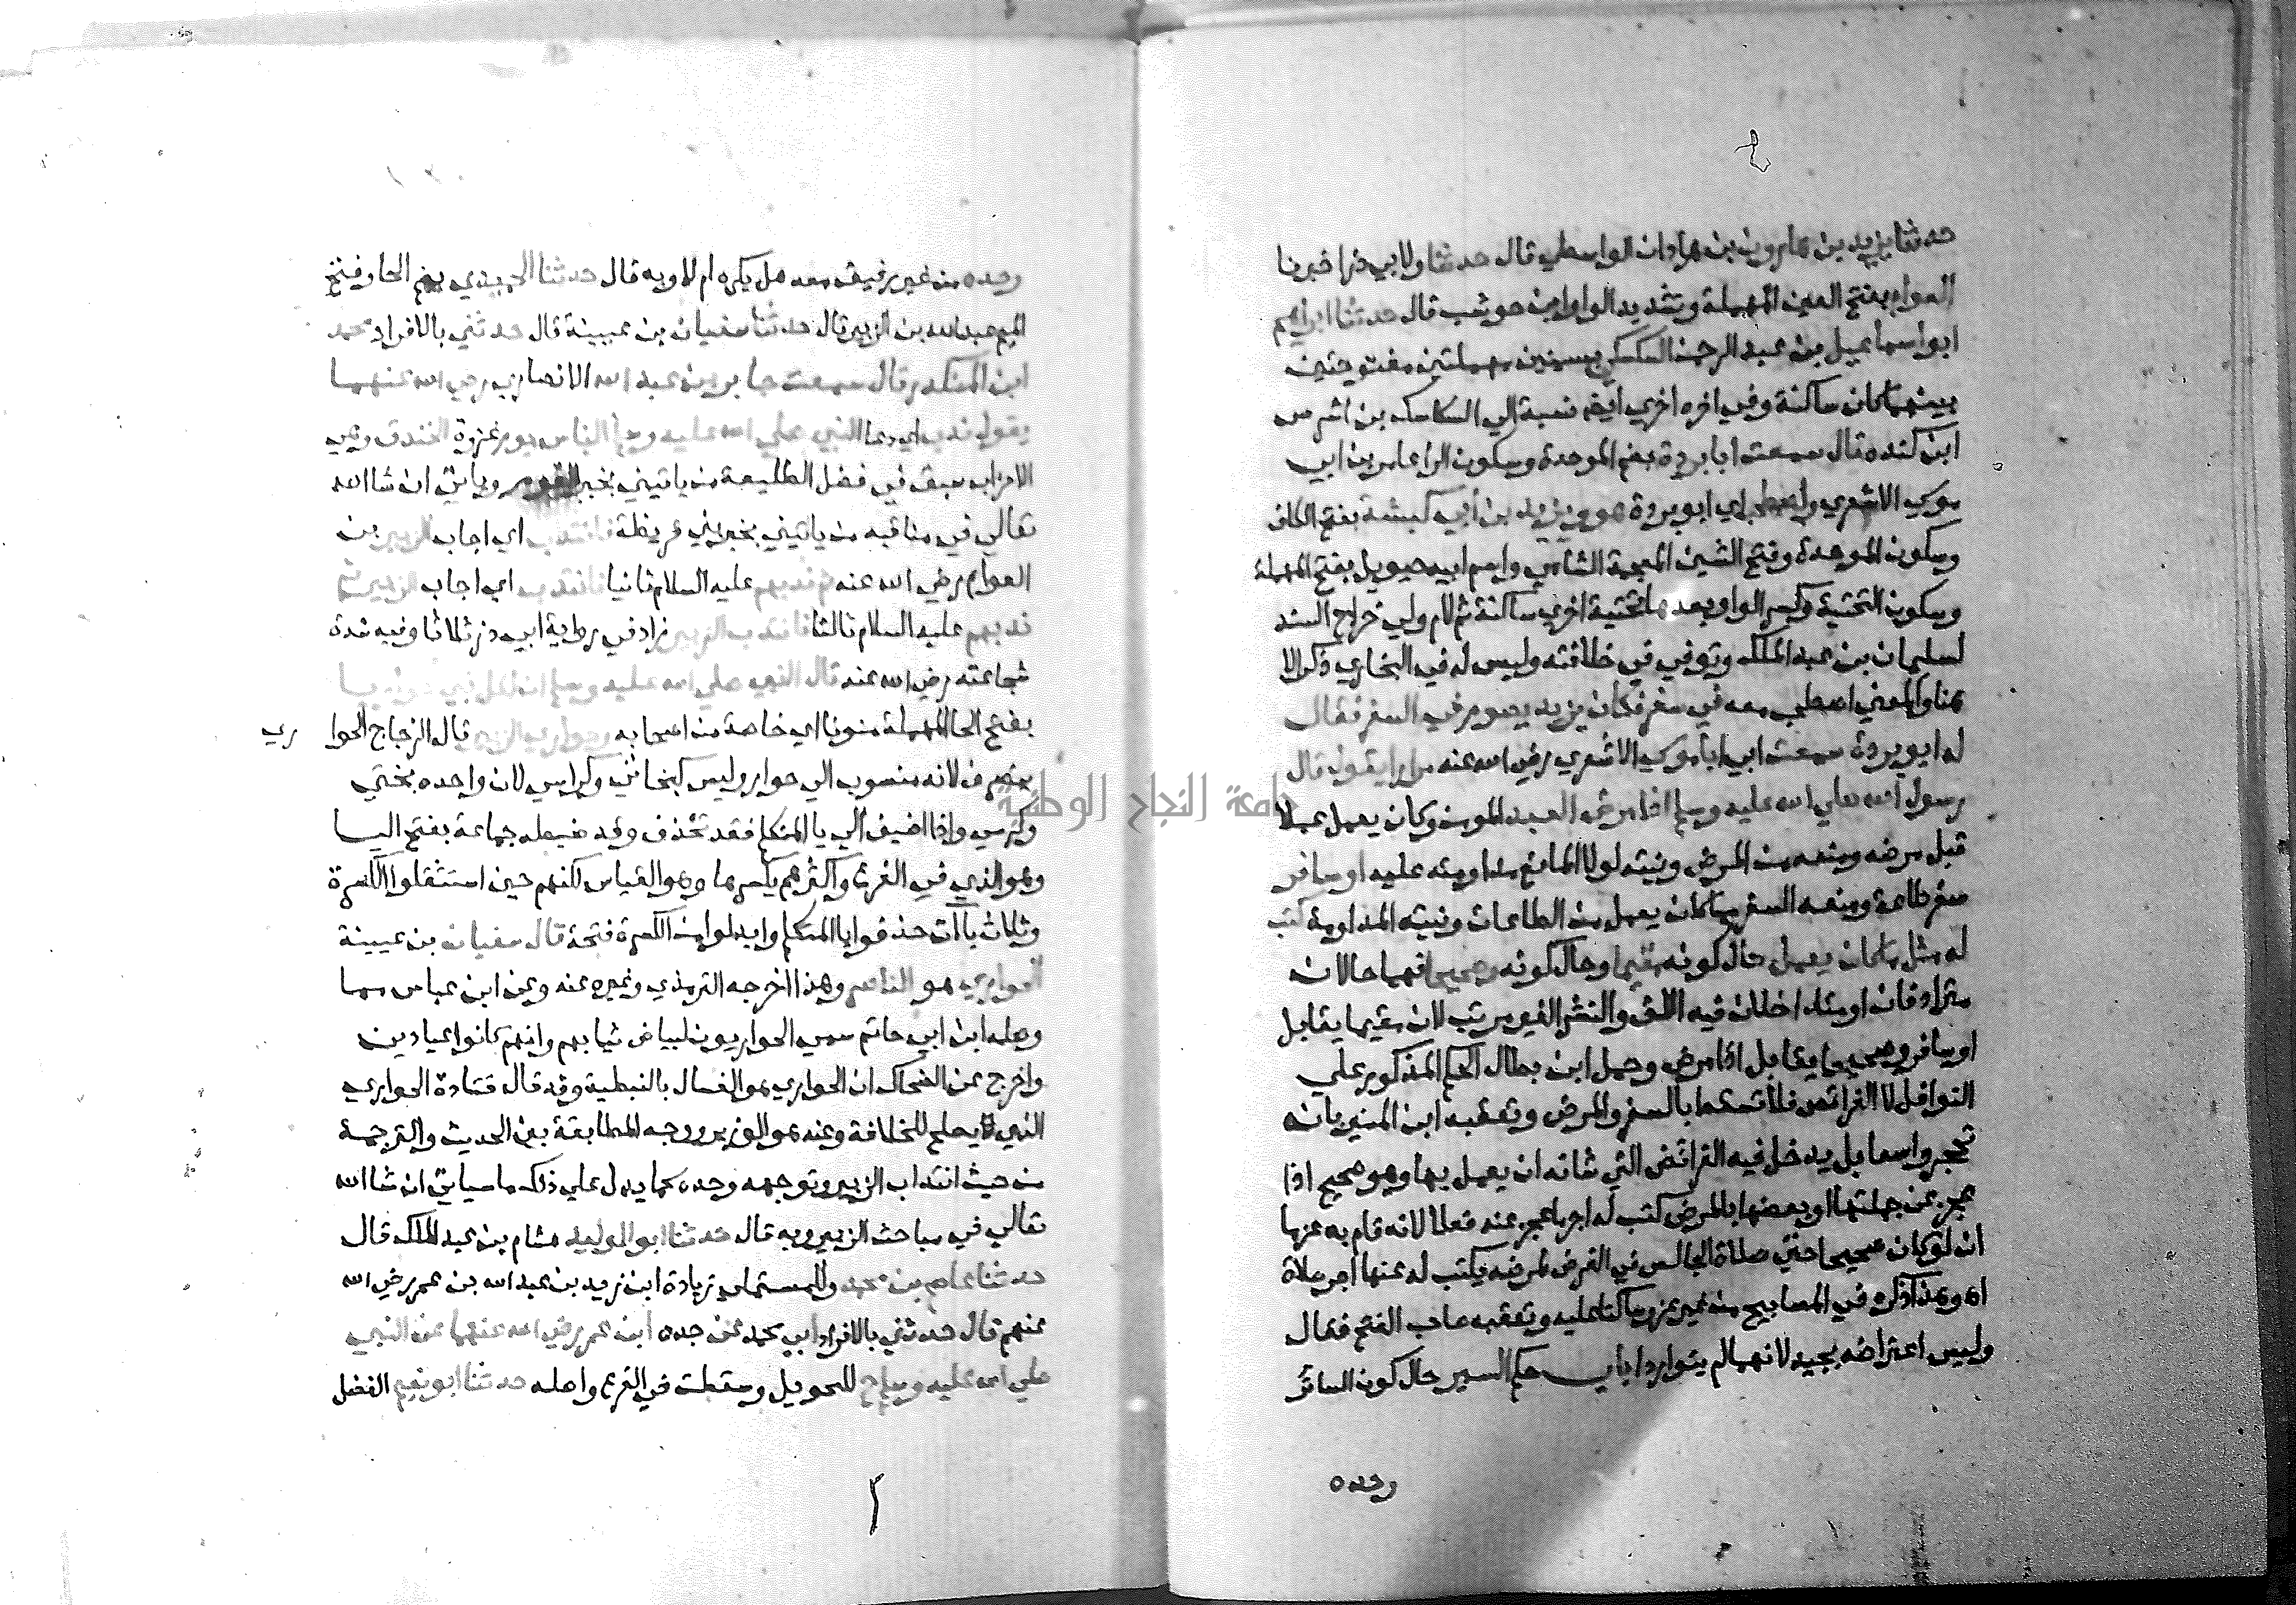 حدثنا يزيد بن هارون بن زادان الواسطي قال حدثنا ولابي ذر اخبرنا
العوام بفتح العين المهملة وتشديد الواو ابن حوشب قال حدثنا ابراهيم
ابو اسماعيل بن عبد الرحمن السكسكي بسينين مهملتين مفتوحتين
بينهما كاف ساكنة وفي اخره اخري ايضا نسبة الي السكاسك بن اشرس
ابن كنده قال سمعت ابا بردة بضم الموحدة وسكون الرا عامر بن ابي
موسي الاشعري واصطحب اي ابو بردة هو ويزيد بن أبي كبشة بفتح الكاف
وسكون الموحدة وفتح الشين المعجمة الشامي واسم ابيه حيويل بفتح المهملة
وسكون التحتية وكسر الواو بعدها تحتية اخري ساكنة ثم لام ولي خراج السند
لسليمان بن عبد الملك وتوفي في خلافته وليس له في البخاري ذكر الا
هنا والمعني اصطحب معه في سفر فكان يزيد يصوم في السفر فقال
له ابو بردة سمعت ابي ابا موسي الاشعري رضي الله عنه مرارا يقول قال
رسول الله صلي الله عليه وسلم اذا مرض العبد المومن وكان يعمل عملا
قبل مرضه ومنعه منه المرض ونيته لولا المانع مداومته عليه او سافر
سفر طاعة ومنعه السفر مما كان يعمل من الطاعات ونيته المداومة كتب
له مثل ما كان يعمل حال كونه مقيما وحال كونه صحيحا فهما حالان
مترادفان او متداخلان فيه اللف والنشر الغير مرتب لان مقيما يقابل
او سافر وصحيحا يقابل اذا مرض وحمل ابن بطال الحكم المذكور علي
النوافل لا الفرائض فلا تسقط بالسفر والمرض وتعقبه ابن المنير بانه
تحجر واسعا بل يدخل فيه الفرائض التي شانه ان يعمل بها وهو صحيح اذا
عجز عن جملتها او بعضها بالمرض كتب له اجر ما عجز عنه فعلا لانه قام به عزما
ان لو كان صحيحا حتي صلاة الجالس في الفرض لمرضه يكتب له عنها اجر صلاة
اه وهذا ذكره في المصابيح من غير عزو ساكتا عليه وتعقبه صاحب الفتح فقال
وليس اعتراضه بجيد لانهما لم يتواردا باب حكم السير حال كون السائر
وحده
وحده من غير رفيق معه هل يكره ام لا وبه قال حدثنا الحميدي بضم الحا وفتح
الميم عبد الله بن الزبير قال حدثنا سفيان بن عيينة قال حدثني بالافراد محمد
ابن المنكدر قال سمعت جابر بن عبد الله الانصاري رضي الله عنهما
يقول ندب اي دعا النبي صلي الله عليه وسلم الناس يوم غزوة الخندق وهي
الاحزاب سبق في فضل الطليعة من ياتيني بخبر القوم وياتي ان شا الله
تعالي في مناقبه من ياتيني بخبر بني قريظة فانتدب اي اجاب الزبير بن
العوام رضي الله عنه ثم ندبهم عليه السلام ثانيا فانتدب اي اجاب الزبير ثم
ندبهم عليه السلام ثالثا فانتدب الزبير زاد في رواية ابي ذر ثلاثا وفيه شدة
شجاعته رضي الله عنه قال النبي صلي الله عليه وسلم ان لكل نبي حواريا
بفتح الحا المهملة منونا اي خاصة من اصحابه وحواري الزبير قال الزجاج الحوا ري
منصرف لانه منسوب الي حوار وليس كبخاتي وكراسي لان واحده بختي
وكرسي واذا اضيف الي يا المتكلم فقد تحذف وقد ضبطه جماعة بفتح اليا
وهو الذي في الفرع واكثرهم بكسرها وهو القياس لكنهم حين استثقلوا الكسرة
وثلاث ياات حذفوا يا المتكلم وابدلوا من الكسرة فتحة قال سفيان بن عيينة
الحواري هو الناصر وهذا اخرجه الترمذي وغيره عنه وعن ابن عباس مما
وصله ابن ابي حاتم سمي الحواريون لبياض ثيابهم وانهم كانوا صيادين
واخرج عن الضحاك ان الحواري هو الغسال بالنبطية وقد قال قتادة الحواري
الذي يصلح للخلافة وعنه هو الوزير ووجه المطابقة بين الحديث والترجمة
من حيث انتداب الزبير وتوجهه وحده كما يدل علي ذلك ما سياتي ان شا الله
تعالي في مباحث الزبير وبه قال حدثنا ابو الوليد هشام بن عبد الملك قال
حدثنا عاصم بن محمد وللمستملي زيادة ابن زيد بن عبد الله بن عمر رضي الله
عنهم قال حدثني بالافراد ابي محمد عن جده ابن عمر رضي الله عنهما عن النبي
صلي الله عليه وسلم ح للتحويل وسقطت في الفرع واصله حدثنا ابو نعيم الفضل
جامعة النجاح الوطنية